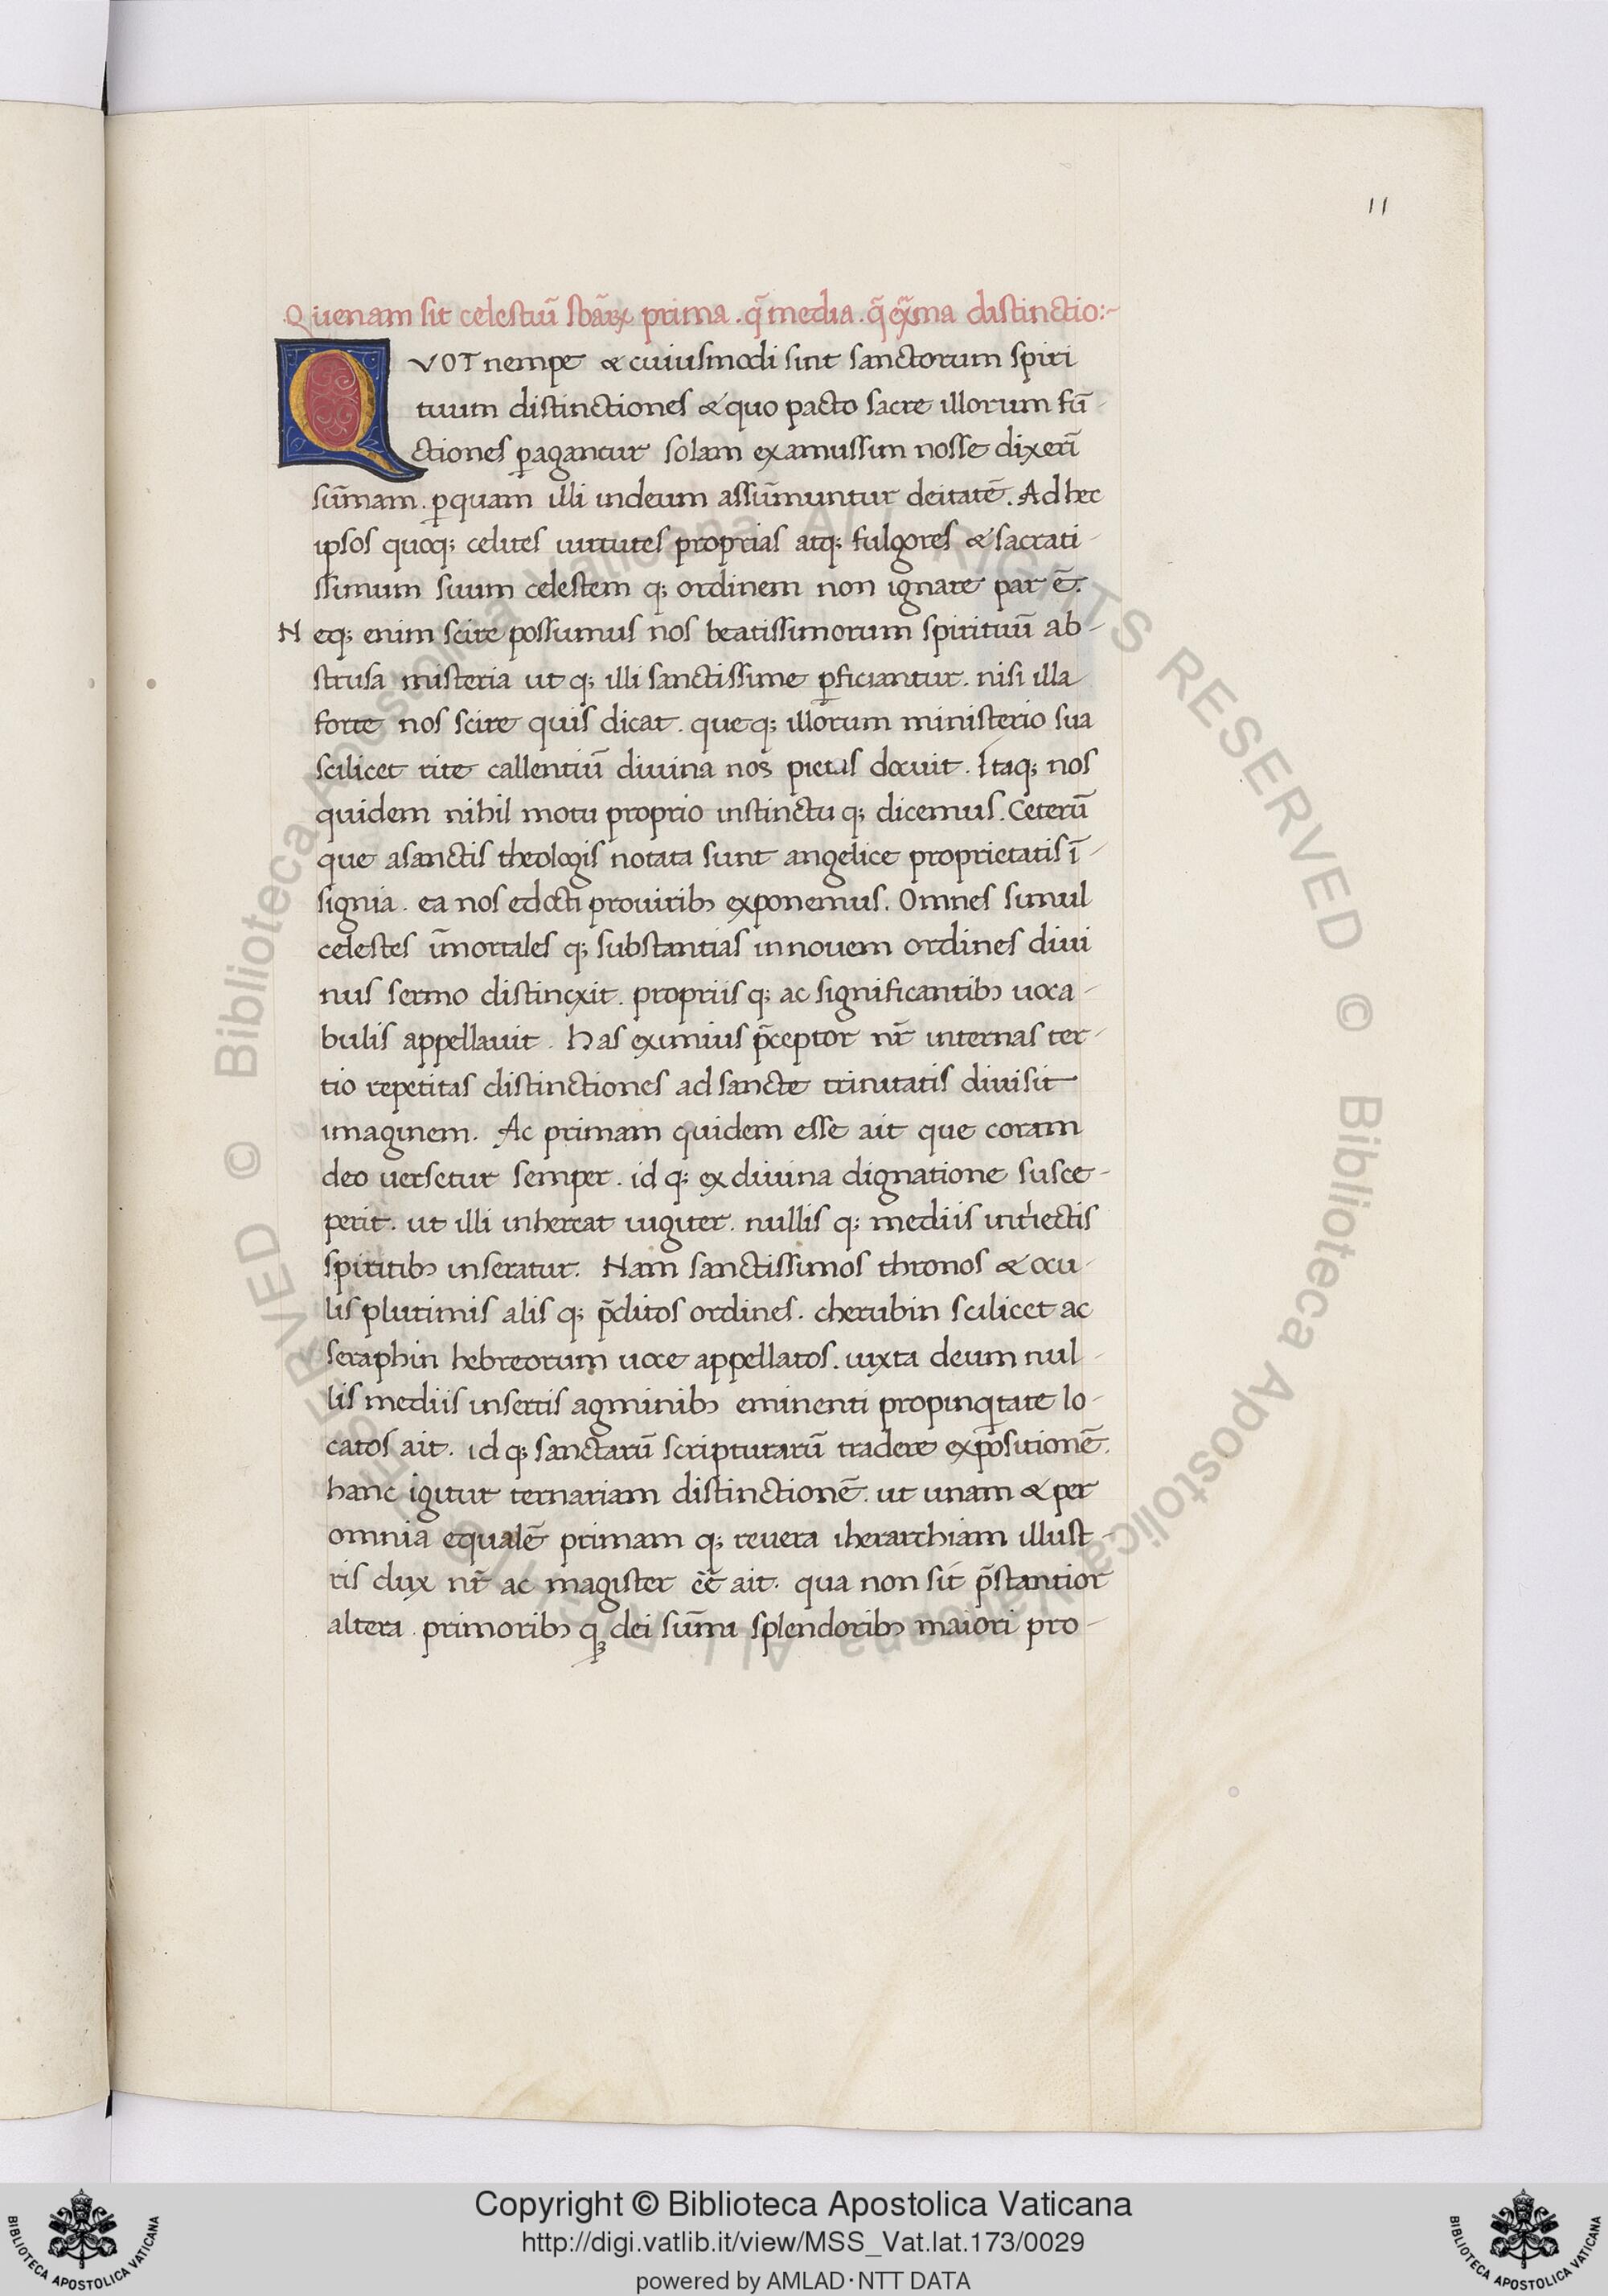 11
Quenam sit celestiū sb̄arꝝ prima . q̄ media . q̄ ex̄ma distinctio:~
QVOT nempe & cuiusmodi sint sanctorum spiri
tuum distinctiones & quo pacto sacre illorum fū-
ctiones ꝑagantur solam examussim nosse dixeri͂
sūmam . ꝑquam illi indeum assūmuntur deitatē . Ad hec
ipsos quoq; celites uirtutes proprias atq; fulgores & sacrati-
ssimum suum celestem q; ordinem non ignare par ē .
Neq; enim scire possumus nos beatissimorum spirituū ab-
strusa misteria ut q; illi sanctissime ꝑficiantur . nisi illa
forte nos scire quis dicat . queq; illorum ministerio sua
scilicet rite callentiū diuina nos pietas docuit . Itaq; nos
quidem nihil motu proprio instinctu q; dicemus . Ceterū
que asanctis theologis notata sunt angelice proprietatis ī-
signia . ea nos edocti prouiribꝫ exponemus . Omnes simul
celestes īmortales q; substantias innouem ordines diui
nus sermo distincxit . propriis q; ac significantibꝫ uoca-
bulis appellauit . Has eximius p̄ceptor nr̄ internas ter-
tio repetitas distinctiones ad sancte trinitatis diuisit
imaginem . Ac primam quidem esse ait que coram
deo uersetur semper . id q; ex diuina dignatione susce-
perit . ut illi inhereat iugiter . nullis q; mediis intiectis
spiritibꝫ inseratur . Nam sanctissimos thronos & ocu-
lis plurimis alis q; p̄ditos ordines . cherubin scilicet ac
seraphin hebreorum uoce appellatos . iuxta deum nul-
lis mediis insertis agminibꝫ eminenti propinqitate lo-
catos ait . id q; sanctarū scripturarū tradere expositionē .
hanc igitur ternariam distinctionē . ut unam & per
omnia equalē primam q; reuera iherarchiam illust-
ris dux nr̄ ac magister ēē ait . qua non sit p̄stantior
altera . primoribꝫ qꝫ dei sūmi splendoribꝫ maiori pro-
© Biblioteca Apostolica Vaticana ALL RIGHTS RESERVED © Biblioteca Apostolica Vaticana ALL RIGHTS RESERVED
Copyright © Biblioteca Apostolica Vaticana
http://digi.vatlib.it/view/MSS_Vat.lat.173/0029
powered by AMLAD·NTT DATA
BIBLIOTECA APOSTOLICA VATICANA
BIBLIOTECA APOSTOLICA VATICANA